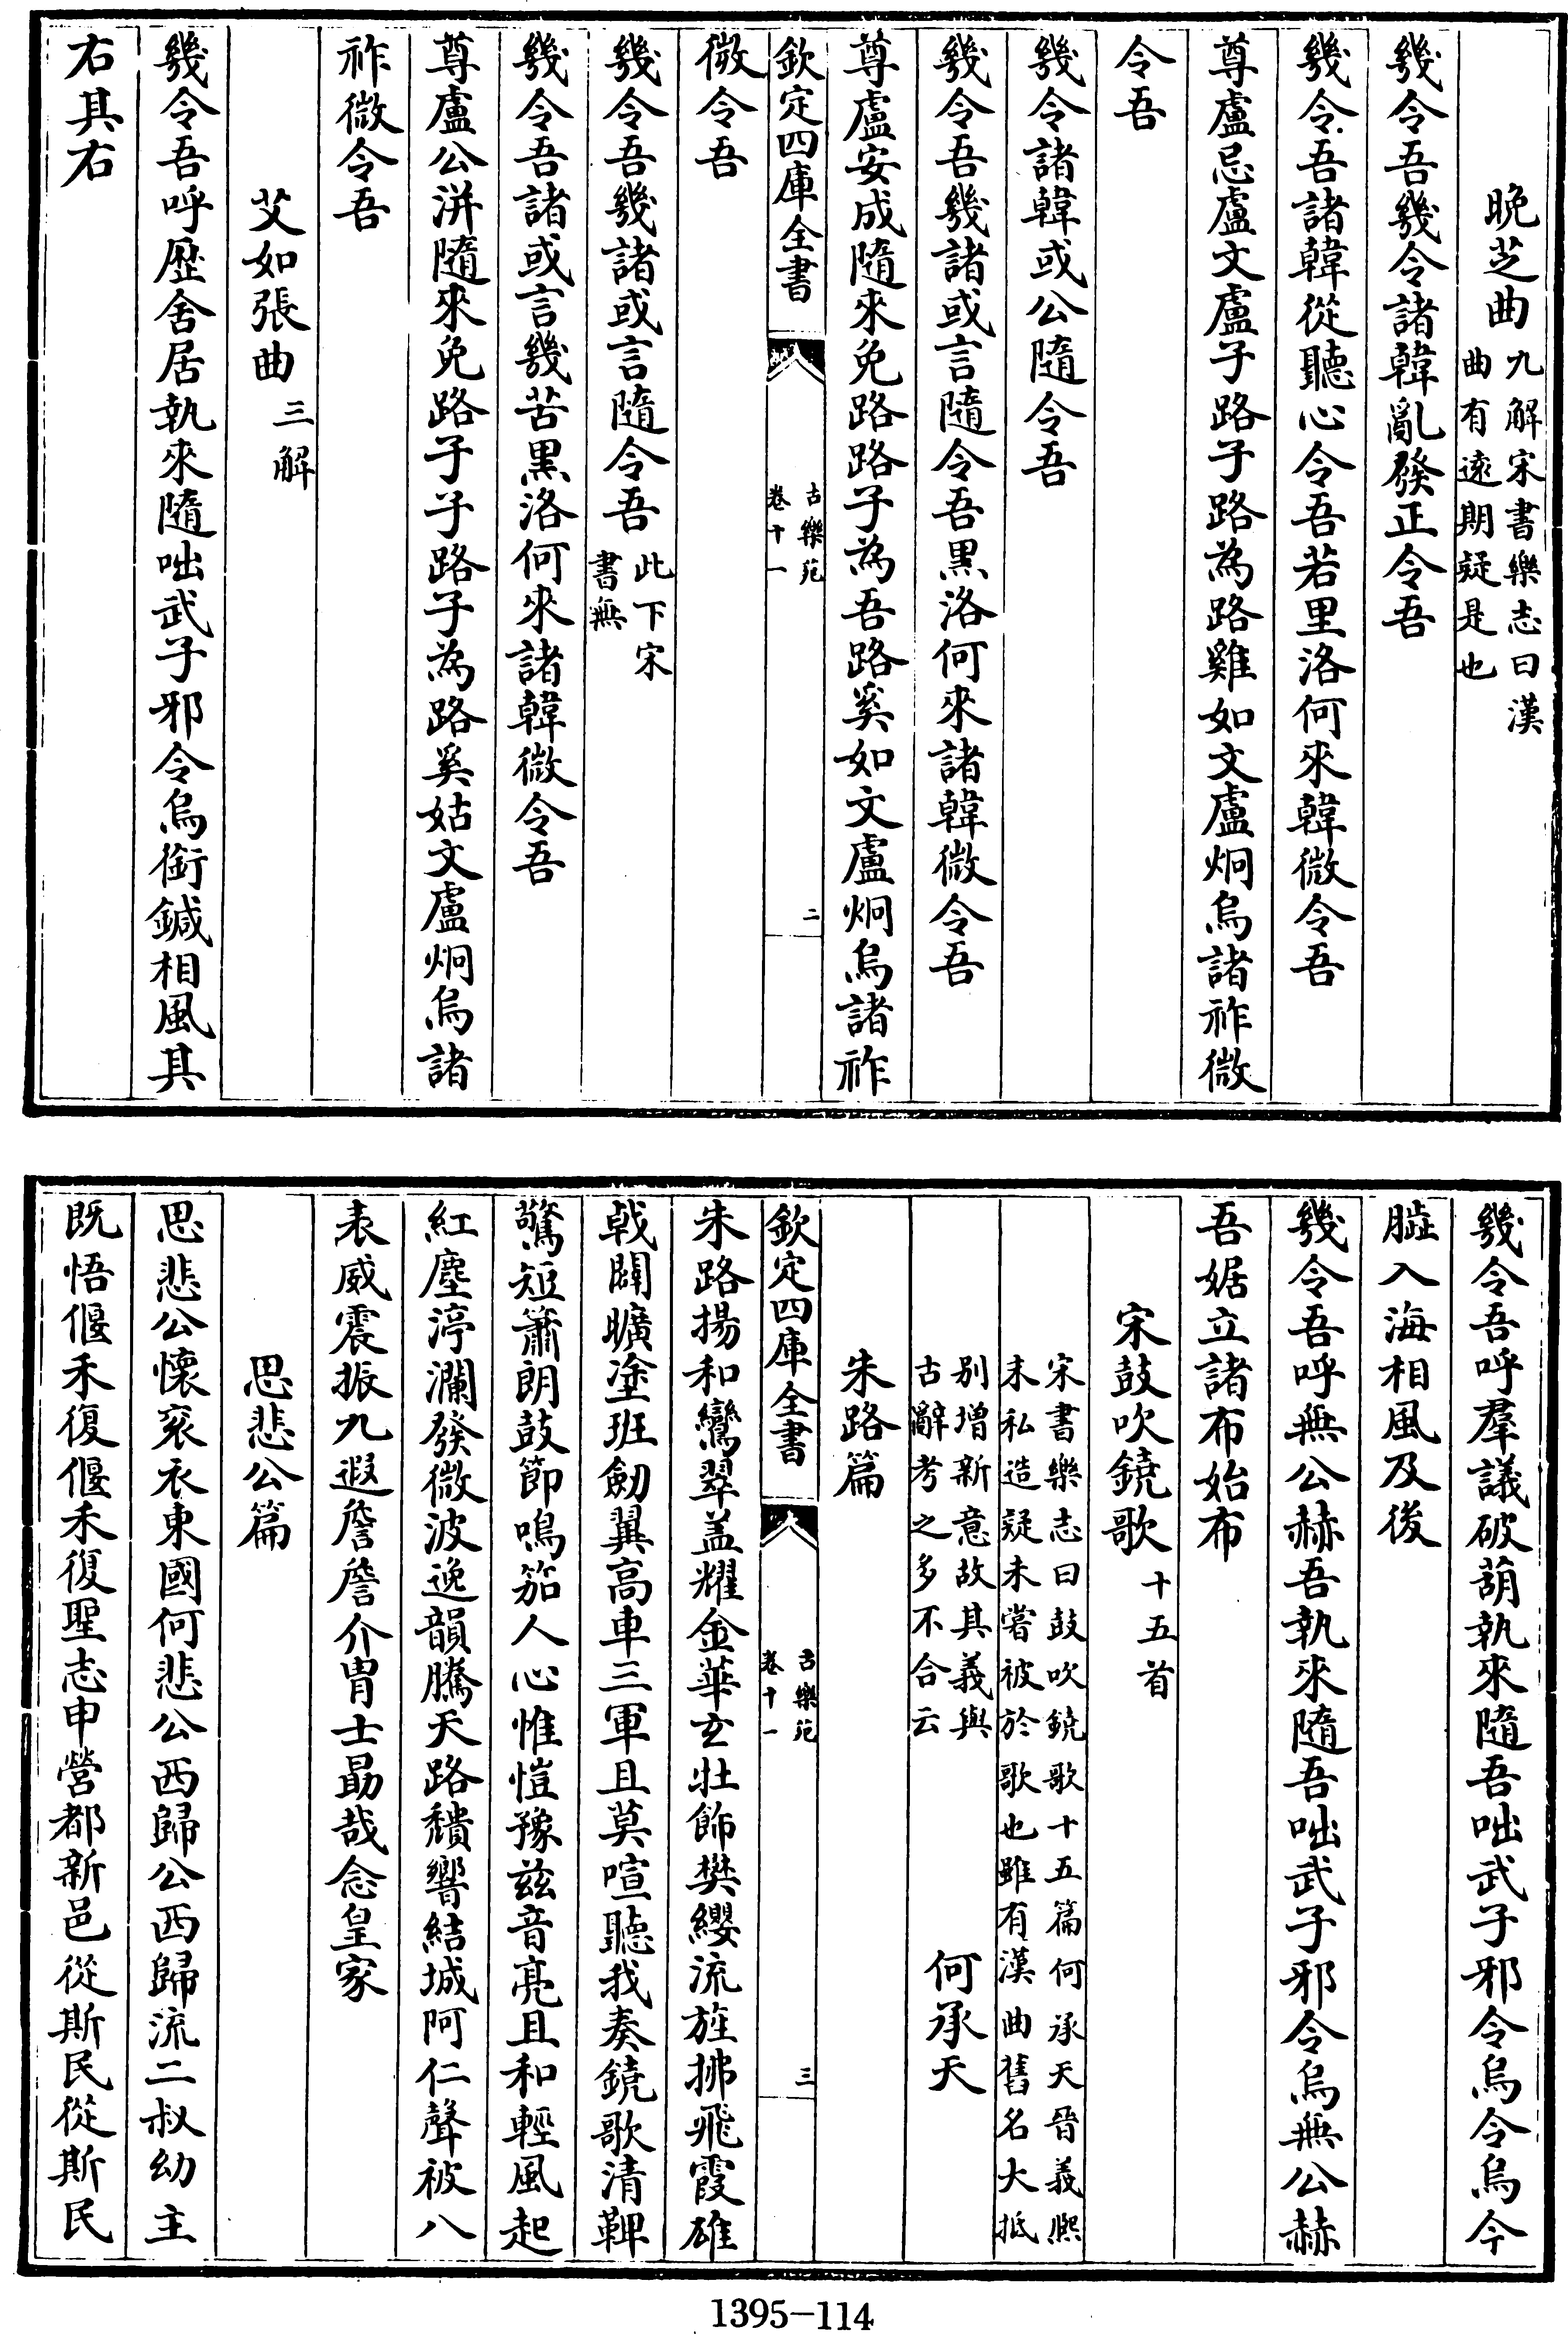 晩芝曲九解宋書樂志曰漢
曲有遠期疑是也
幾令吾幾令諸韓亂發正令吾
幾令吾諸韓從聽心令吾若里洛何來韓微令吾
尊盧忌盧文盧子路子路為路雞如文盧炯烏諸祚微
令吾
幾令諸韓或公隨令吾
幾令吾幾諸或言隨令吾黑洛何來諸韓微令吾
尊盧安成隨來免路路子為吾路奚如文盧炯烏諸祚
欽定四庫全書
古樂苑
卷十一
二
微令吾
幾令吾幾諸或言隨令吾此下宋
書無
幾令吾諸或言幾苦黑洛何來諸韓微令吾
尊盧公洴隨來免路子子路子為路奚姑文盧炯烏諸
祚微令吾
艾如張曲三解
幾令吾呼歷舍居執來隨咄武子邪令烏銜鍼相風其
右其右
幾令吾呼羣議破葫執來隨吾咄武子邪令烏令烏今
臨入海相風及後
幾令吾呼無公赫吾執來隨吾咄武子邪令烏無公赫
吾婮立諸布始布
宋鼓吹鐃歌十五首
宋書樂志曰鼓吹鐃歌十五篇何承天晉義熙
末私造疑未嘗被於歌也雖有漢曲舊名大抵
别增新意故其義與
古辭考之多不合云
何承天
朱路篇
欽定四庫全書
古樂苑
卷十一
三
朱路揚和鸞翠盖耀金華玄壯飾樊纓流旌拂飛霞雄
戟闢曠塗班劒翼高車三軍且莫喧聽我奏鐃歌清鞞
驚短簫朗鼓節鳴笳人心惟愷豫兹音亮且和輕風起
紅塵渟瀾發微波逸韻騰天路穨響結城阿仁聲被八
表威震振九遐詹詹介冑士勗哉念皇家
思悲公篇
思悲公懷衮衣東國何悲公西歸公西歸流二叔幼主
既悟偃禾復偃禾復聖志申營都新邑從斯民從斯民
1395-114